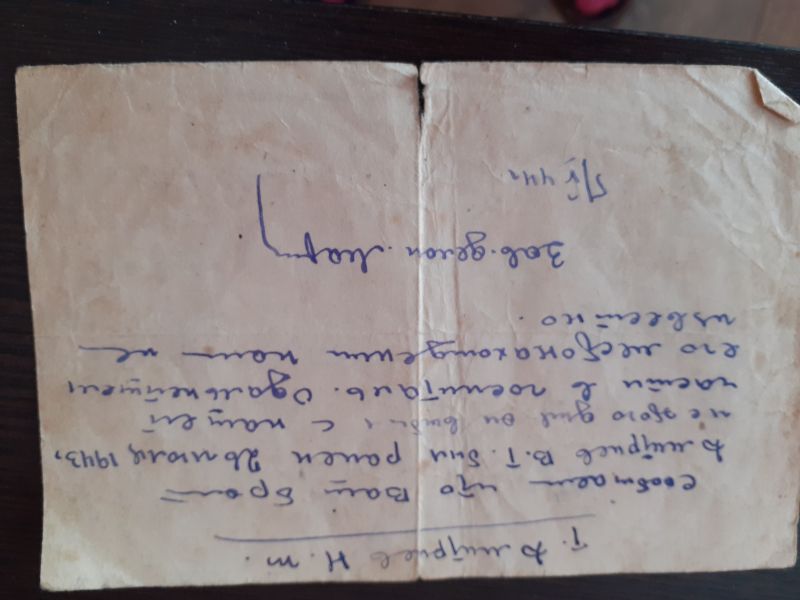 Т. Дмитриев Н. т.
сообщаем что Ваш брат
Дмитриев В.Т. был ранен 26 июля, 1943,
с этого дня он выбыл с нашей
части в госпиталь. О дальнейшем
его местонахождении нам не
известно.
Зав. делоп.
5/V 44г